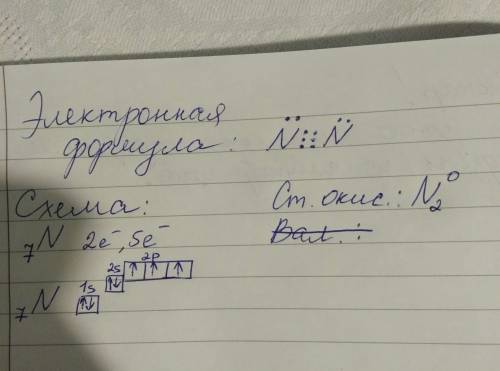 Электронная
формула: N̈⋮⋮N̈
Схема:
Ст. окис.: N₂⁰
₇N 2e⁻, 5e⁻
Вал. :
2p
2s ↑ ↑ ↑
1s ↑↓
₇N ↑↓